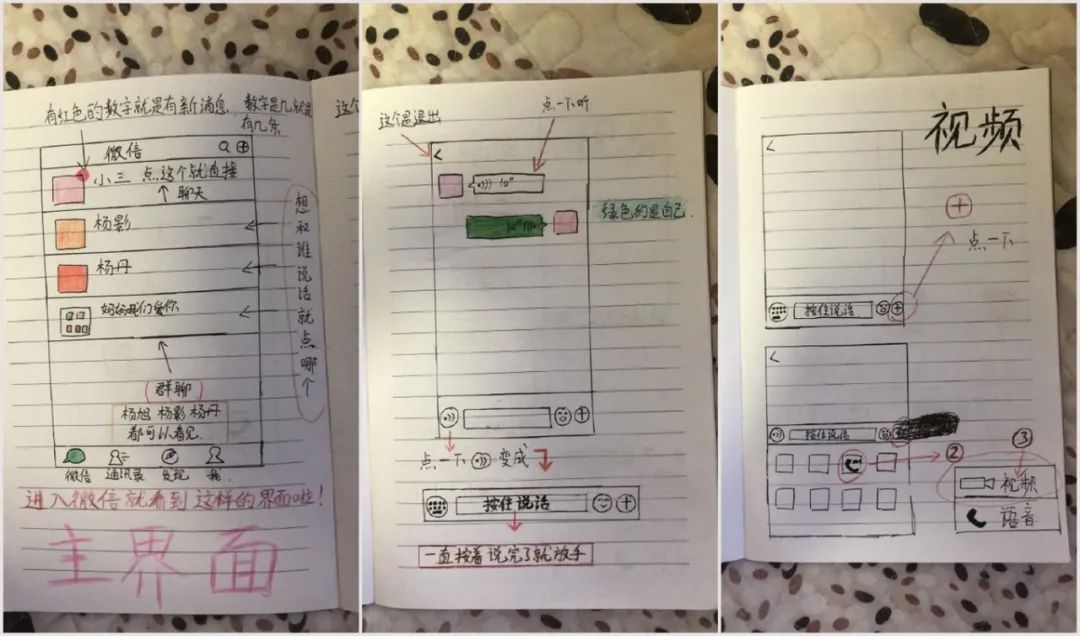 有红色的数字就是有新消息，数字是几就是
有几条
微信
小三 点这个就直接
聊天
杨影
杨丹
妈妈我们爱你
想和谁说话就点哪个
群聊
杨旭 杨影 杨丹
都可以看见.
微信 通讯录 发现 我.
进入微信就看到这样的界面啦！
主界面
这个
这个是退出
点一下听
10"
绿色的是自己.
点一下 变成
按住说话
一直按着 说完了就放手
视频
点一下
按住说话
按住说话
②
③
视频
语音